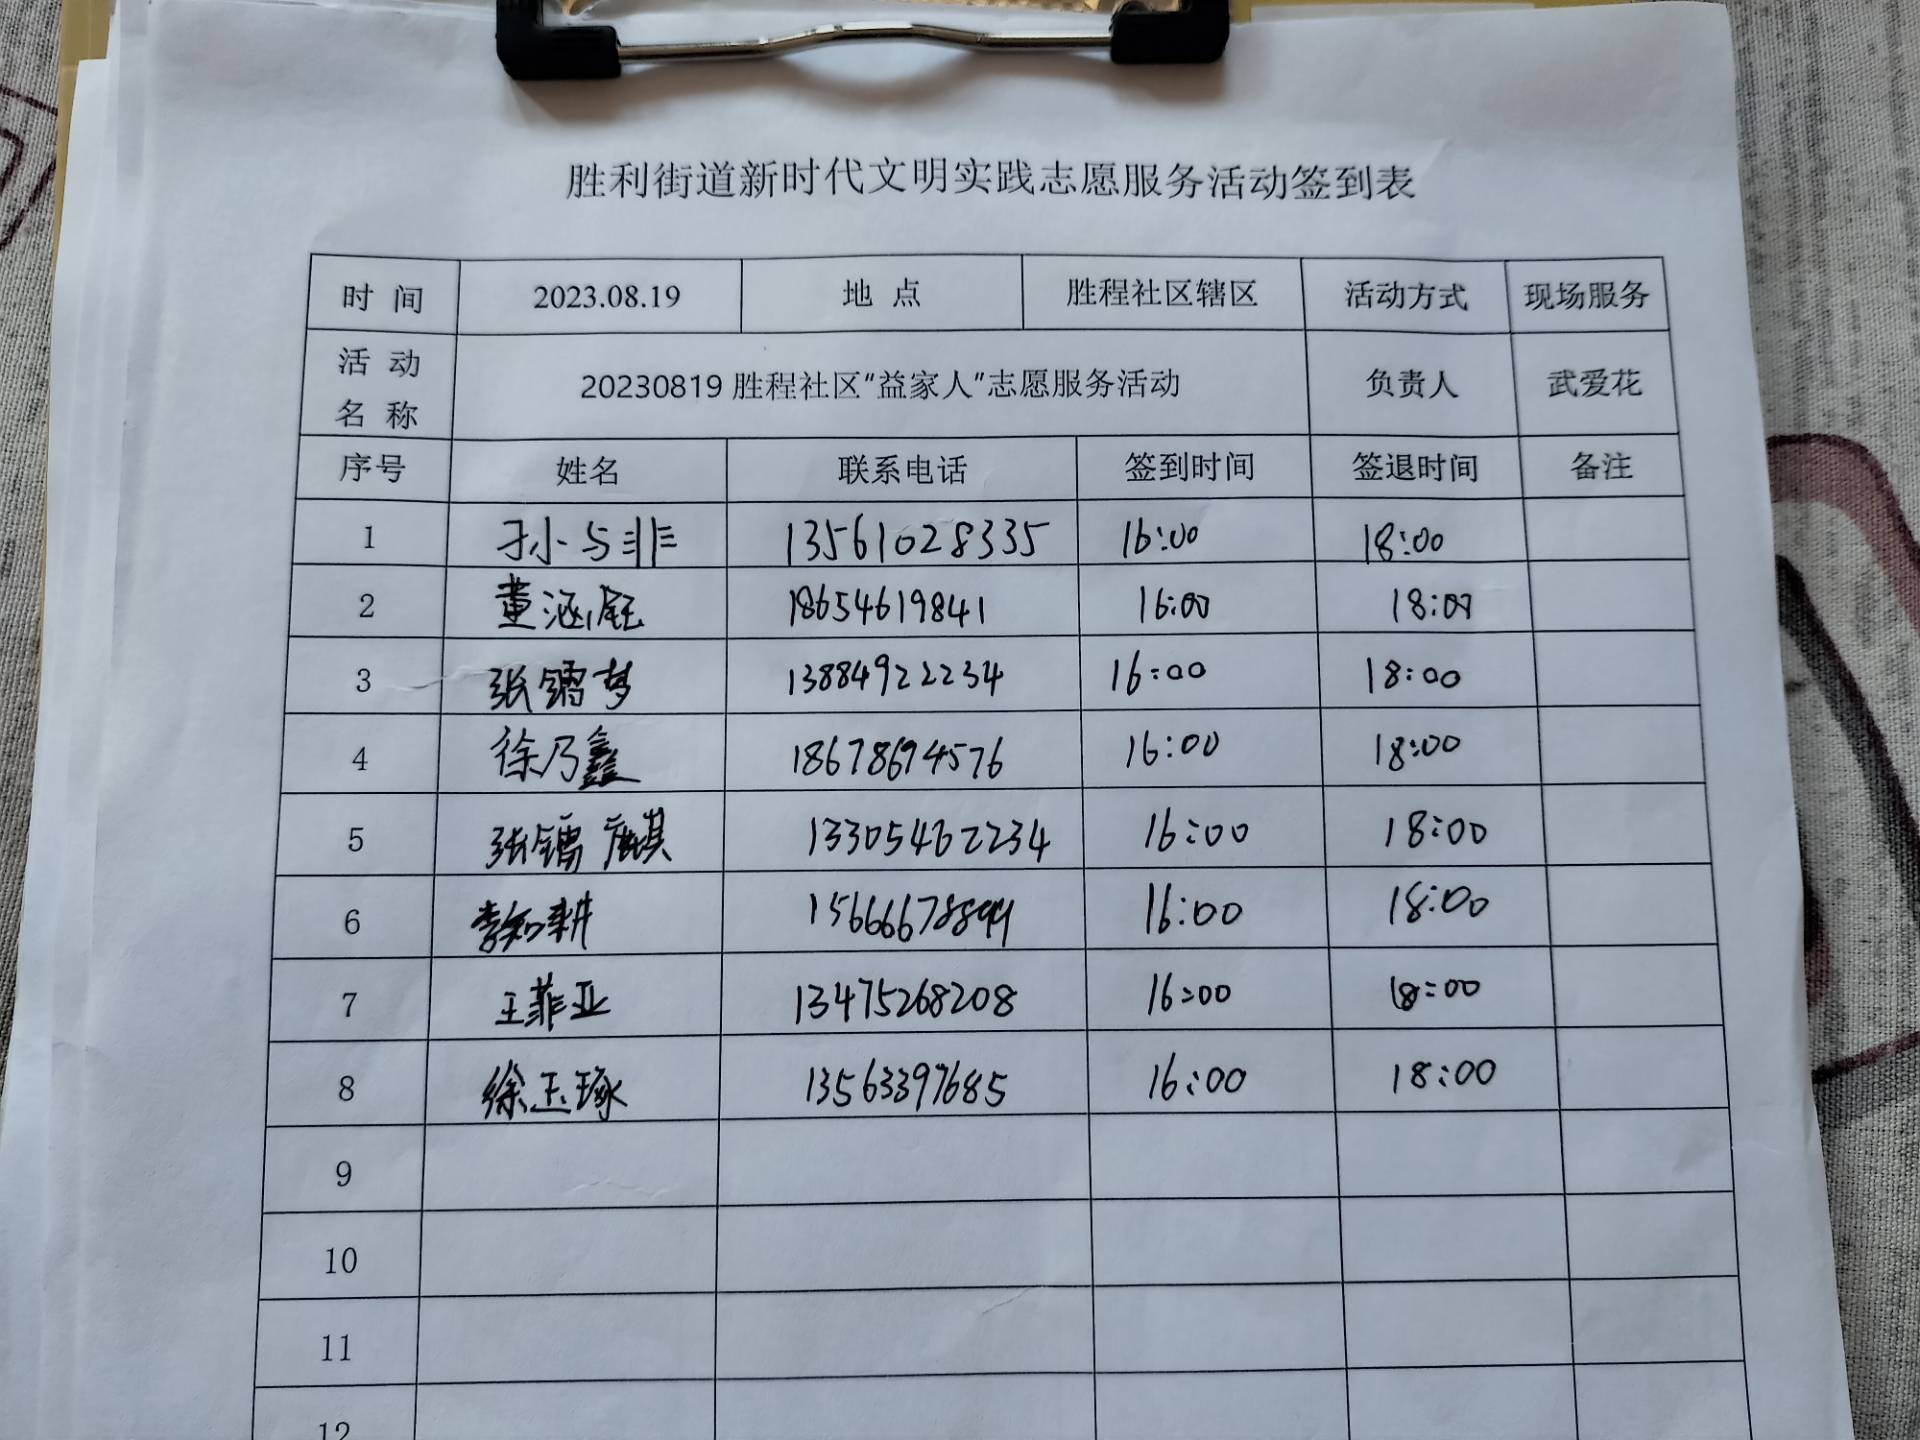 胜利街道新时代文明实践志愿服务活动签到表
时 间 2023.08.19 地 点 胜程社区辖区 活动方式 现场服务
活 动
名 称
20230819 胜程社区“益家人”志愿服务活动 负责人 武爱花
序号 姓名 联系电话 签到时间 签退时间 备注
1 孙与非 13561028335 16:00 18:00
2 董涵钰 18654619841 16:00 18:00
3 张镭梦 13884922234 16:00 18:00
4 徐乃鑫 18678694576 16:00 18:00
5 张镭麒 13305462234 16:00 18:00
6 李知耕 16:00 18:00
7 王菲亚 13475268208 16:00 18:00
8 徐玉琢 13563397685 16:00 18:00
9
10
11
12